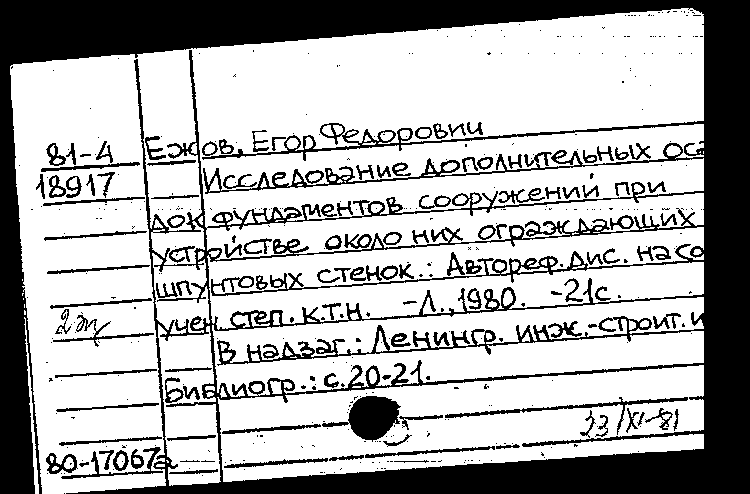 81-4 Ежов, Егор Федорович
18917 Исследование дополнительных оса
док фундаментов сооружений при
устройстве около них ограждающих
шпунтовых стенок.: Автореф. дис. на со
2 эк учен. степ. к.т.н. -Л., 1980. -21с.
В надзаг.: Ленингр. инж.-строит. и
Библиогр.: с.20-21.
/XI-81
80-17067а